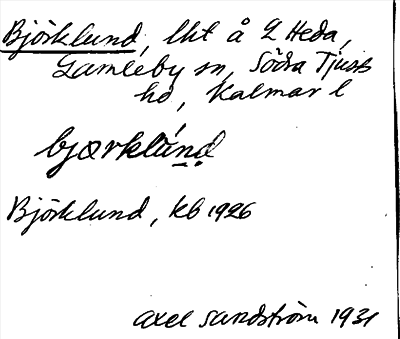 Björklund, lht å L Heda,
Gamleby sn, Södra Tjusts
hd, Kalmar l
bjœrklúnd
Björklund, kb 1926
Axel Sandström 1931